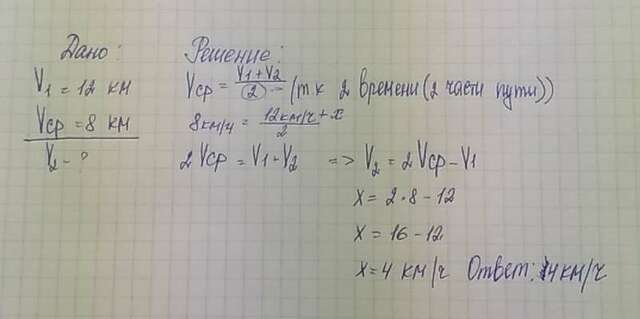 Дано:
V1 = 12 км
Vср = 8 км
V2 - ?
Решение:
Vср = V1 + V2 / 2 - (т к 2 времени (2 части пути))
8 км/ч = 12 км/ч + x / 2
2 Vср = V1 + V2 => V2 = 2 Vср - V1
x = 2 · 8 - 12
x = 16 - 12
x = 4 км/ч Ответ: 4 км/ч